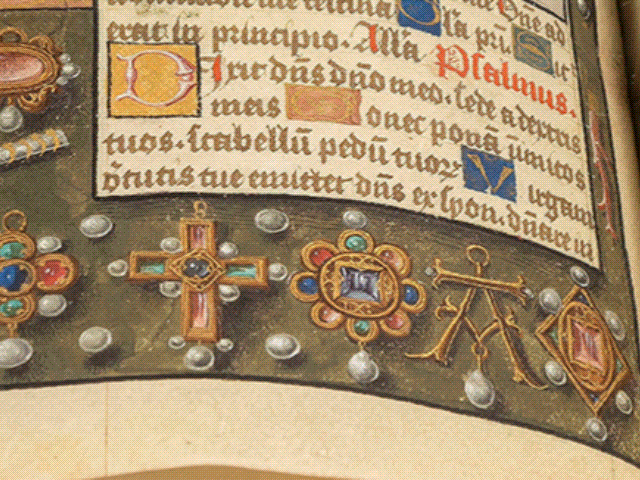 erat in principio. Alla Psalmus.
Dixit dñs dño meo. sede a dextris
meis Donec ponã inimicos
tuos. scabellũ pedũ tuoꝝ Virgam
v̓tutis tue emittet dñs ex syon. dñare in